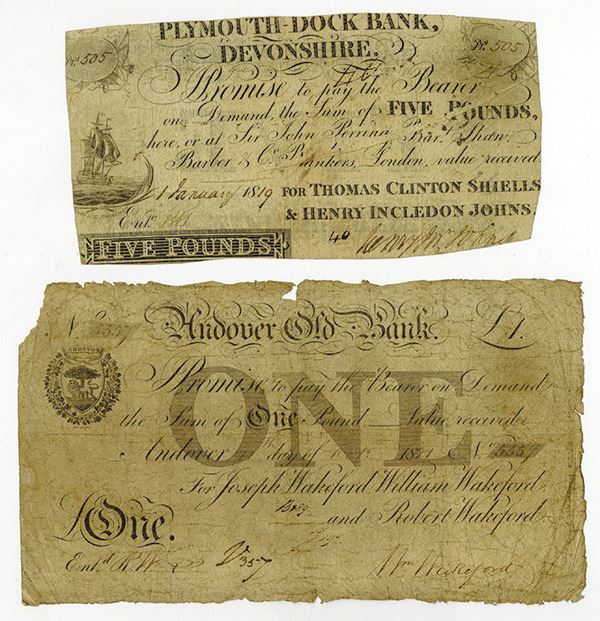 PLYMOUTH-DOCK BANK,
DEVONSHIRE.
No. 505
No. 505
I Promise to pay the Bearer
on Demand, the Sum of FIVE POUNDS,
here, or at Sir John Perring Bart. Shaw,
Barber & Co. Bankers, London, value received
1 January 1819 FOR THOMAS CLINTON SHIELLS
& HENRY INCLEDON JOHNS.
Entd.
40
FIVE POUNDS
Andover Old Bank. £1.
No
ANDEVOR
I Promise to pay the Bearer on Demand
the Sum of One Pound Value received
Andover day of 18 No
ONE
For Joseph Wakeford, William Wakeford
and Robert Wakeford
£One.
Entd. R.W
V357
Wm Wakeford